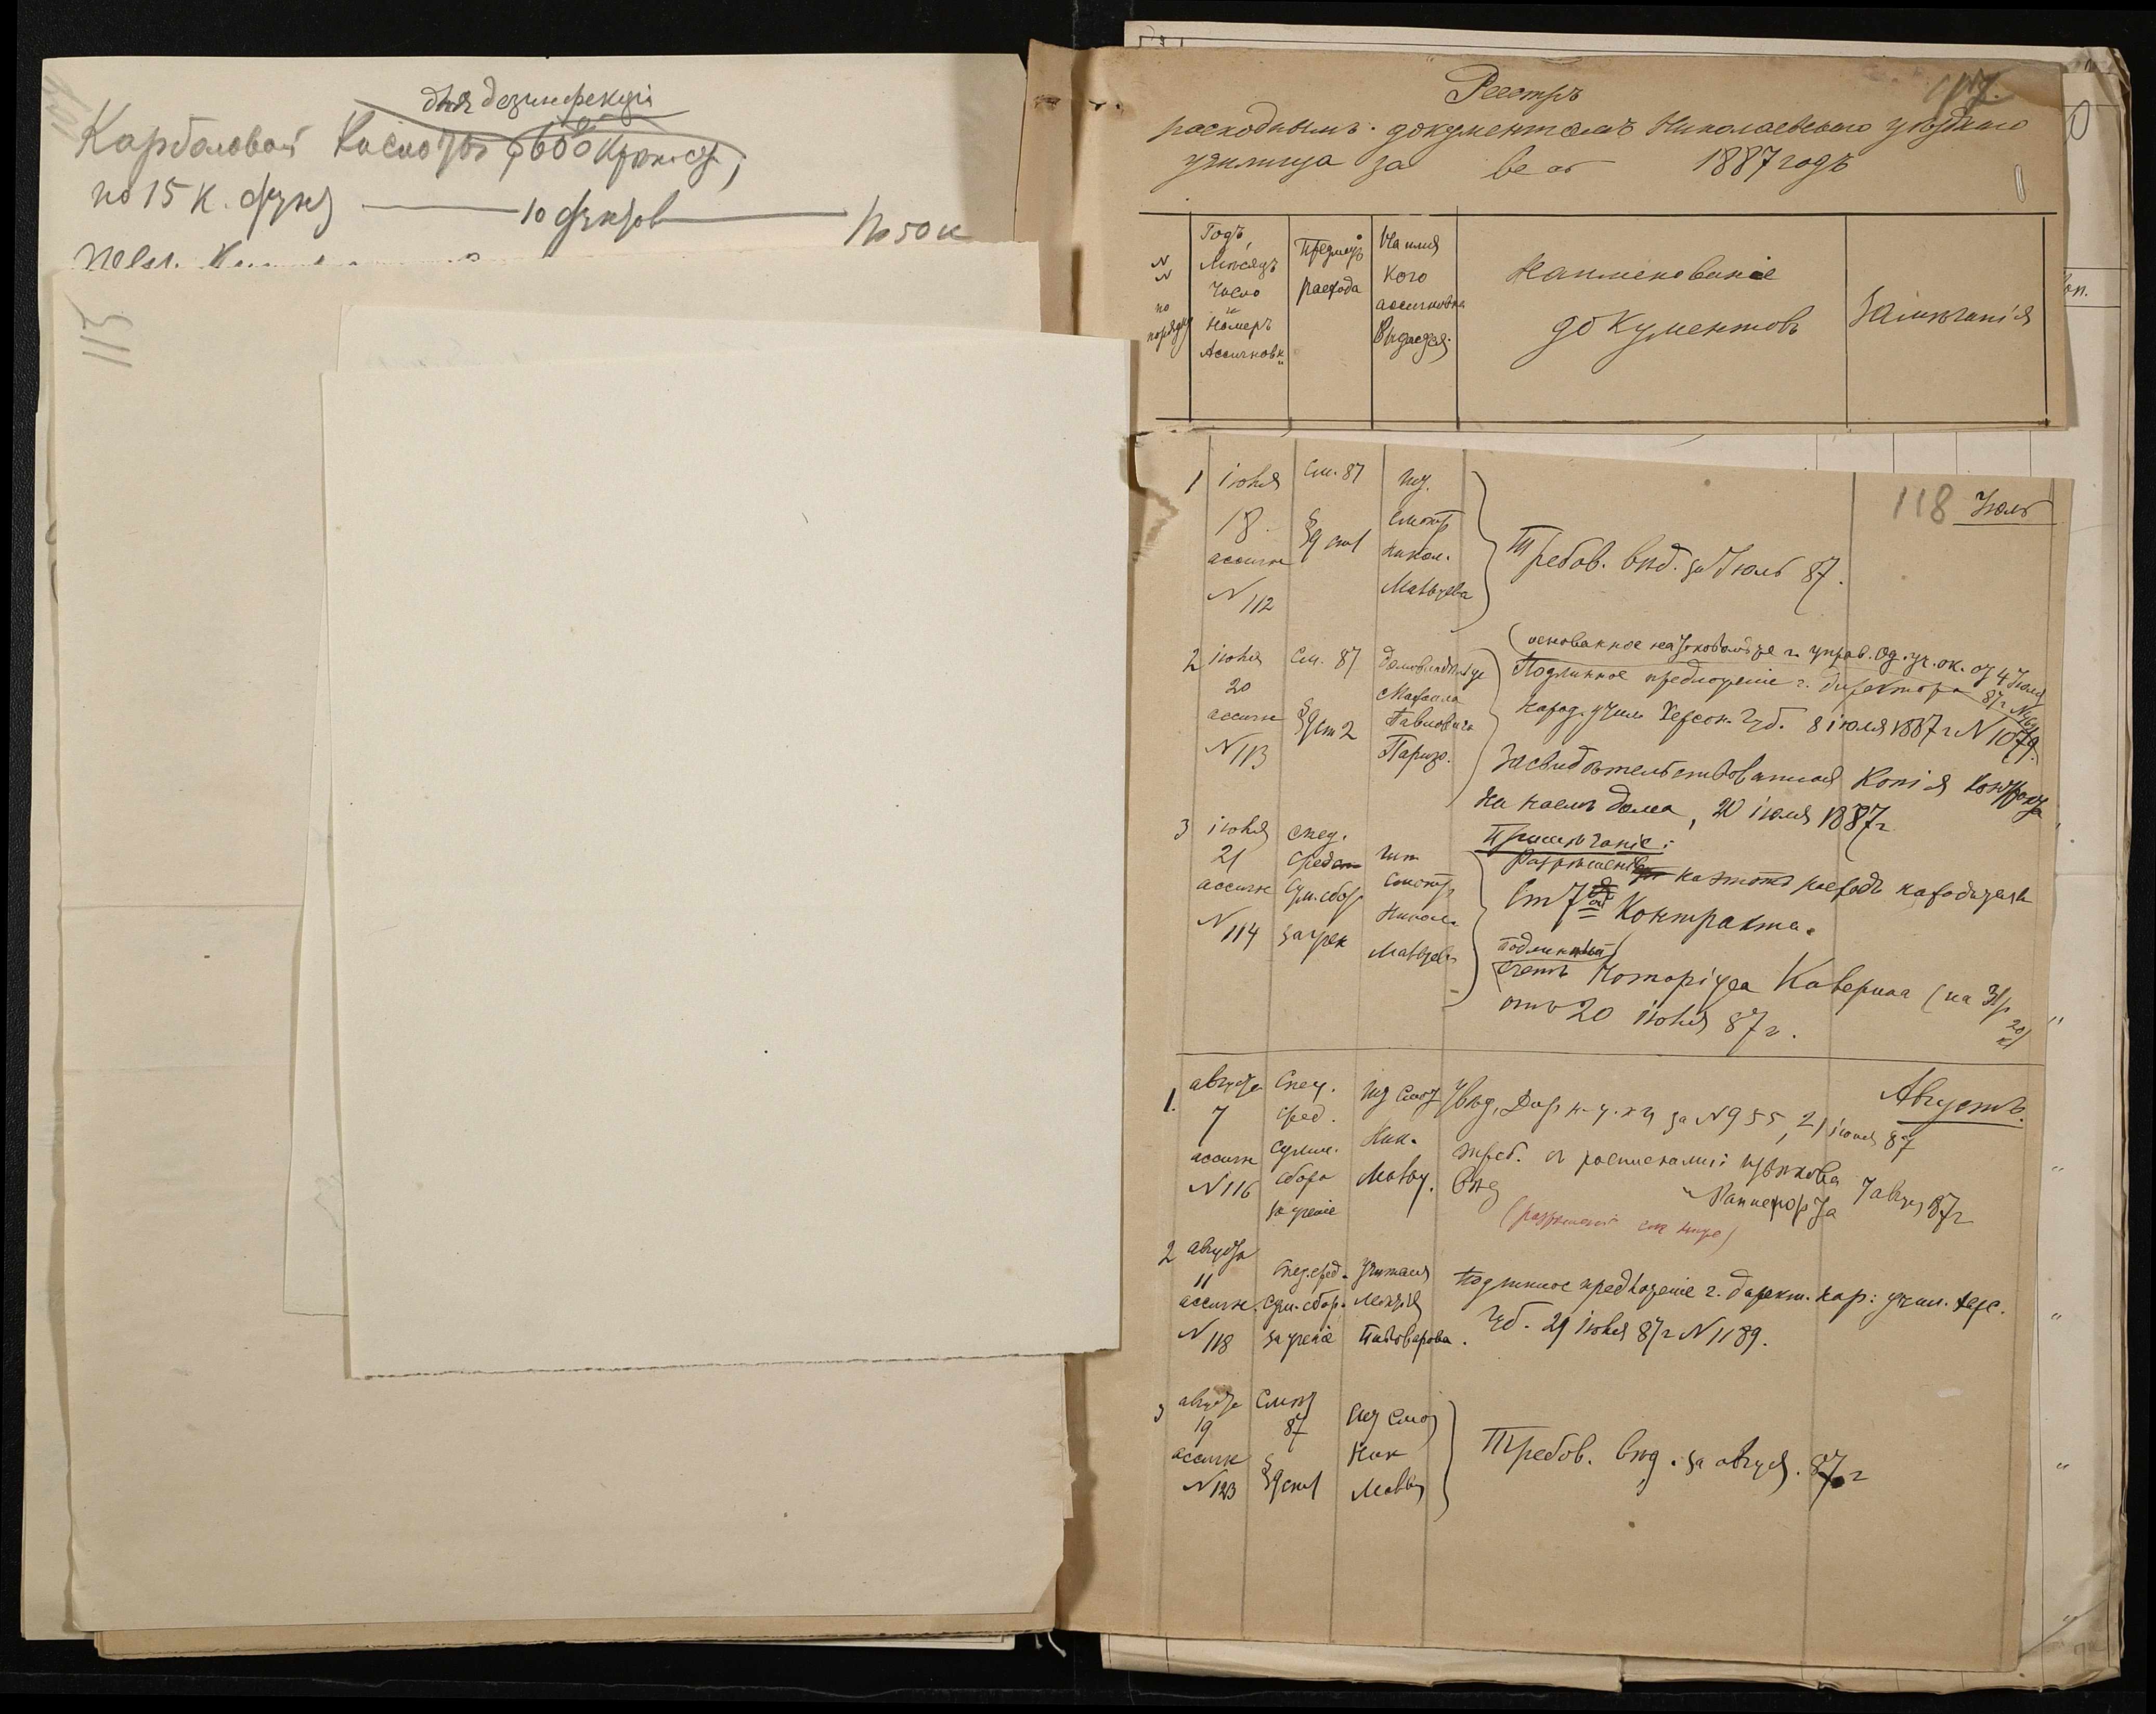 для дезинфекціи
Карболовой Кислоты
по 15 к. фунт 10 фунтов 1 р 50 к
113
117.
Реестръ
расходнымъ документамъ Николаевскаго уѣзднаго
училища за 1887 годъ
N N по порядку
Годъ, Мѣсяцъ Число и Номеръ Ассигновки
Предметъ расхода
На имя кого ассигновка выдается
Наименованіе документовъ
Замѣчанія
118 Іюль
1 іюля 18 ассигн N 112
См. 87 § 9 ст 1
шт. смотр Никол. Матвѣева
Требов. вѣд. за Іюль 87.
2 іюля 20 ассигн N 113
См. 87 § 9 ст 2
домовладѣльца Павловича
(основанное на г. управ. Од. уч. ок. от 4 Іюля 87 г
Подлинное предложеніе г. Директора
народ. учил Херсон. Губ. 8 іюля 1887 г N 1079.
Засвидѣтельствованная копія контракта
на наемъ дома, 20 іюля 1887 г
3 іюля 21 ассигн N 114
спец. сред сум. сбор за учен
шт смотр Никол. Матвѣев
Примѣчаніе:
Разрѣшеніе на этотъ расходъ находится
Ст 7 Контракта.
подлинный
Счетъ Нотаріуса Каверина (на 3 р 20 к)
отъ 20 іюля 87 г.
Августъ.
1. августа 7 ассигн N 116
Спец. сред. сумм. сбора за ученіе
шт Смот Ник. Матвѣ.
Увѣд. Дир н. у. х г за N 955, 21 іюля 87
треб. съ росписками: Цвѣткова
вѣд Раппопорта 7 авгус 87 г
(разрѣшеніе см выше)
2 августа 11 ассигн. N 118
Спец. сред. сум. сбор. за ученіе
учителя Пивоварова.
Подлинное предложеніе г. директ. нар: учил. Херс.
Губ. 29 іюля 87 г N 1189.
3 августа 19 ассигн N 123
Смѣт 87 § 9 ст 1
шт Смот Ник Матвѣ
Требов. вѣд. за август. 87 г